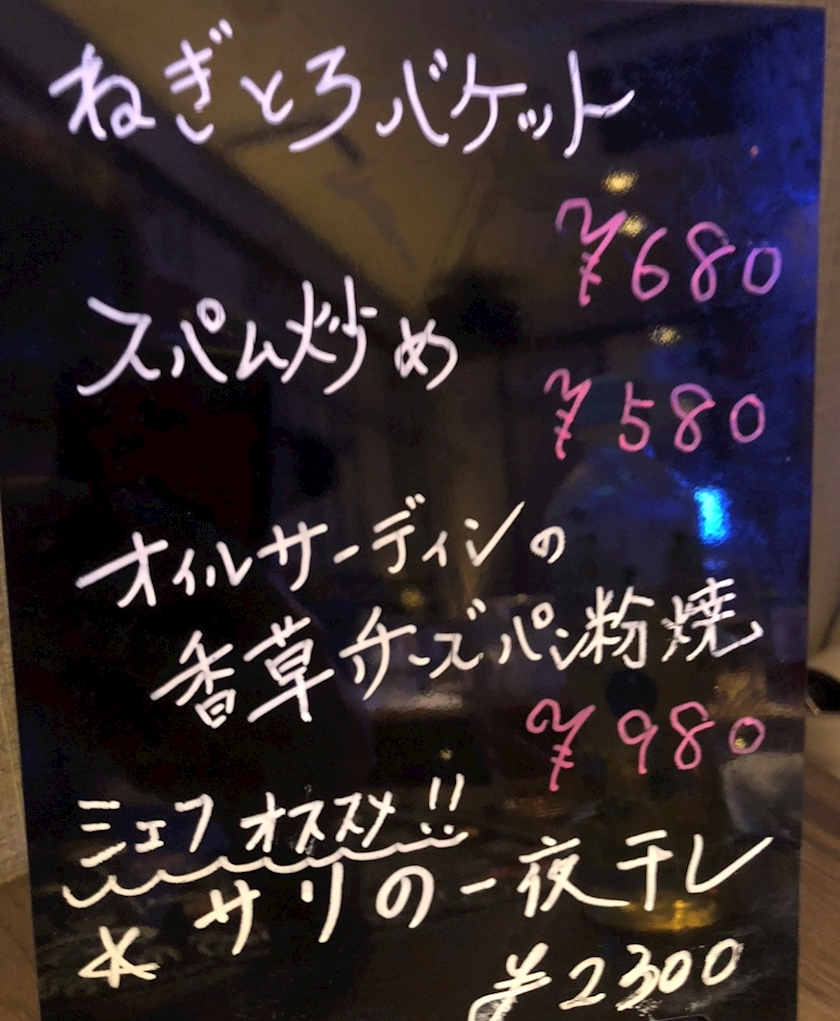 ねぎとろバケット
¥680
スパム炒め
¥580
オイルサーディンの
香草チーズパン粉焼
¥980
シェフオススメ!!
*サリの一夜干し
¥2300